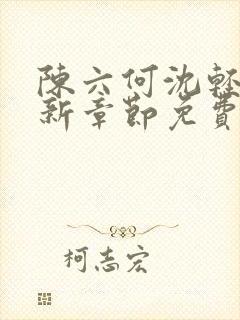 陳六何沈輕
新章節免費
柯志宏